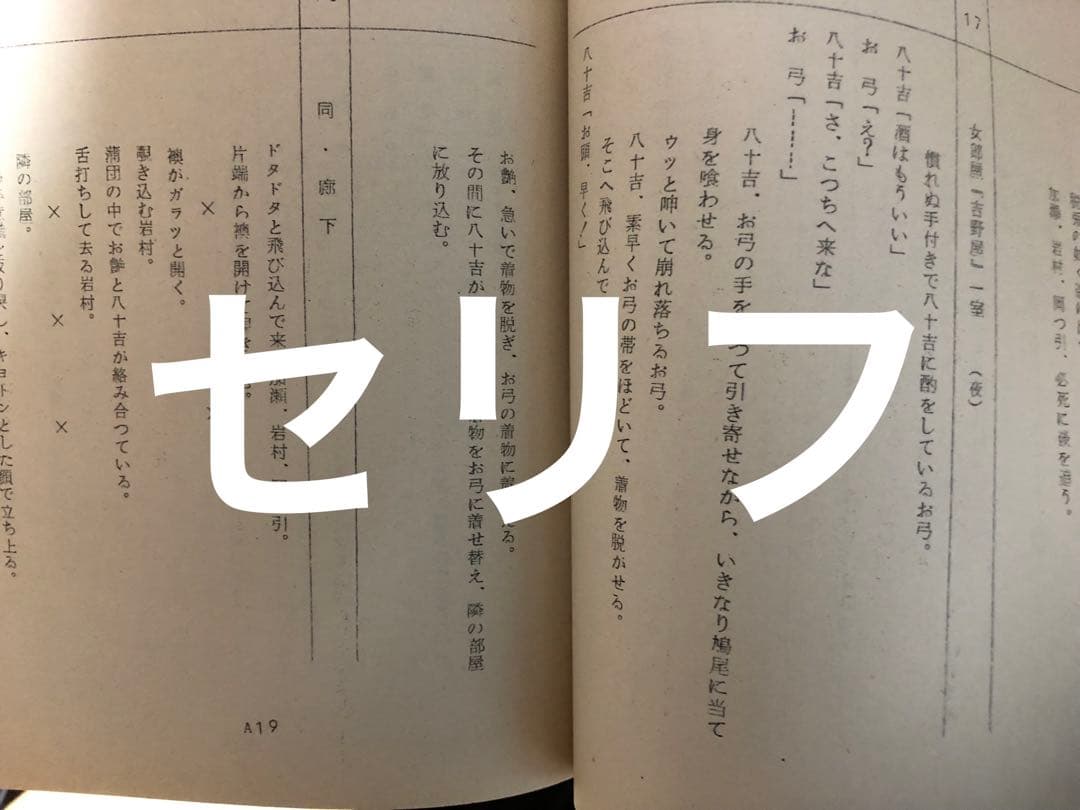 セリフ
17
女郎屋『吉野屋』一室　（夜）
慣れぬ手付きで八十吉に酌をしているお弓。
八十吉「酒はもういい」
お　弓「え？」
八十吉「さ、こつちへ来な」
お　弓「………」
八十吉、お弓の手を つて引き寄せながら、いきなり鳩尾に当て
身を喰わせる。
ウッと呻いて崩れ落ちるお弓。
八十吉、素早くお弓の帯をほどいて、着物を脱がせる。
そこへ飛び込んで
八十吉「お頭、早く！」
お艶、急いで着物を脱ぎ、お弓の着物に る。
その間に八十吉が 物をお弓に着せ替え、隣の部屋
に放り込む。
同・廊下
ドタドタと飛び込んで来 瀬、岩村、 引。
片端から襖を開け
×
襖がガラッと開く。
覗き込む岩村。
蒲団の中でお艶と八十吉が絡み合つている。
舌打ちして去る岩村。
×　×　×
隣の部屋。
キョトンとした顔で立ち上る。
A19